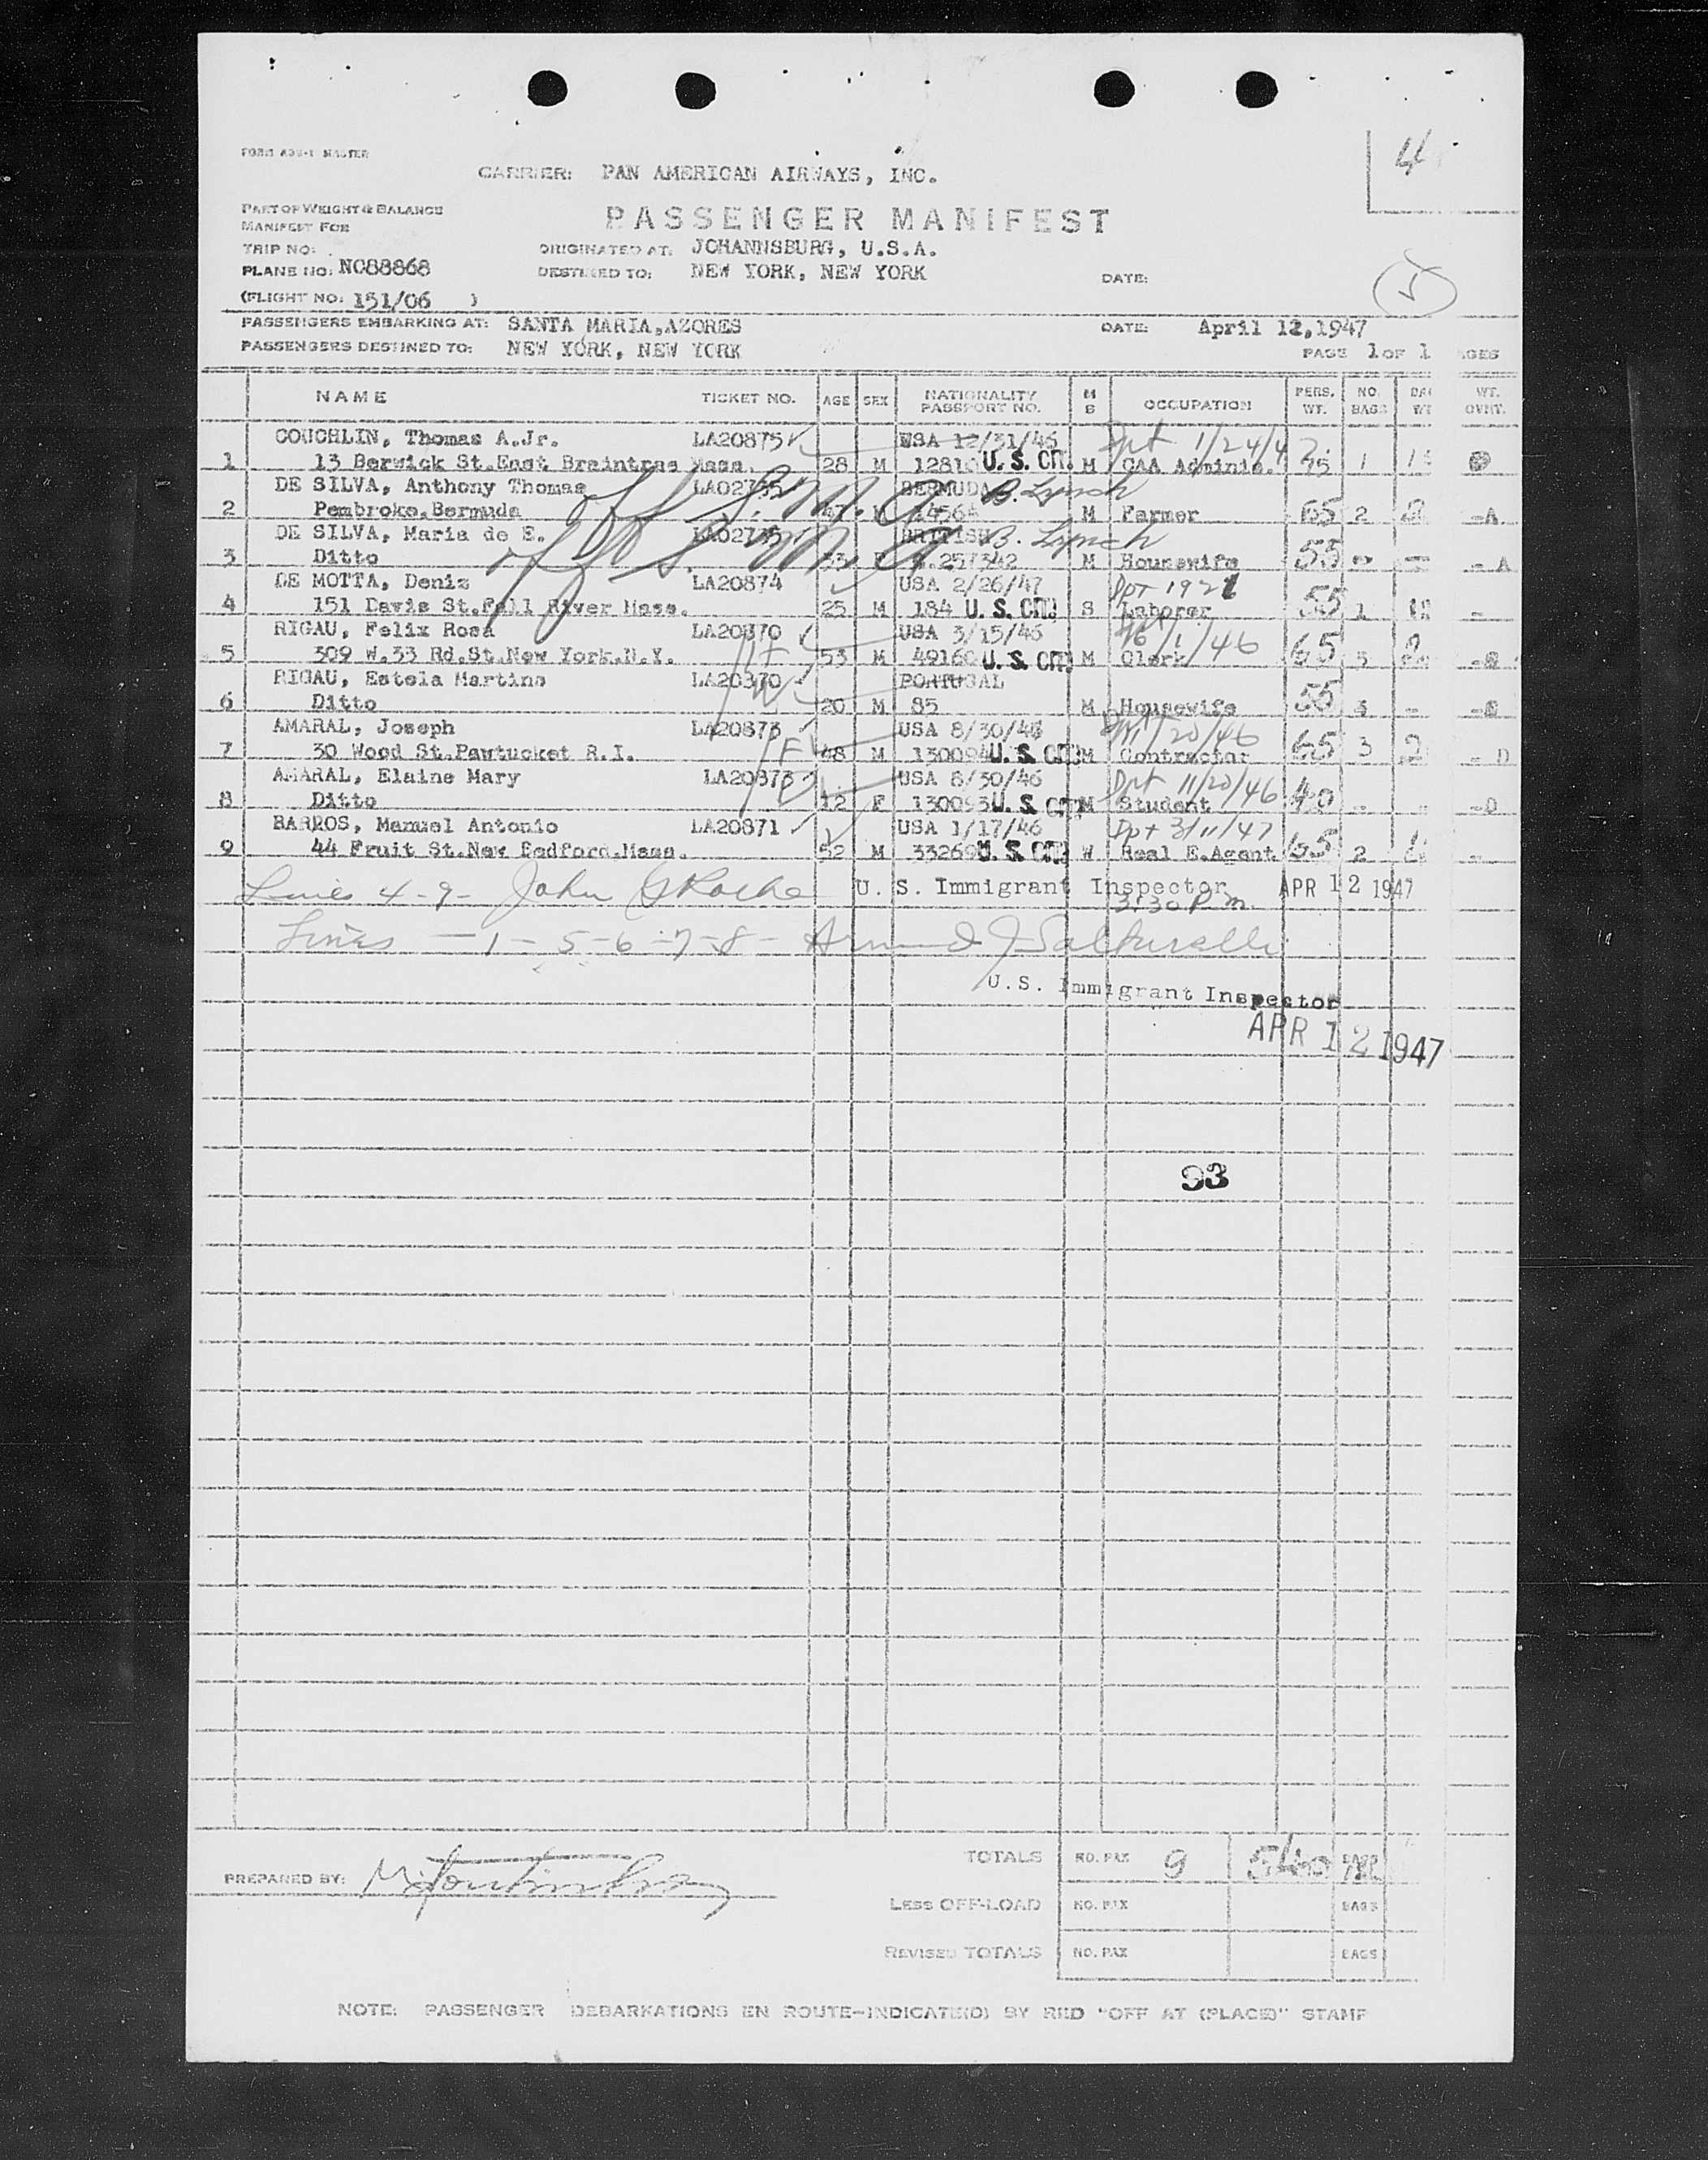 4
FORM ADS-1 MASTER
CARRIER: PAN AMERICAN AIRWAYS, INC.
PART OF WEIGHT & BALANCE
MANIFEST FOR
PASSENGER MANIFEST
TRIP NO: ORIGINATED AT: JOHANNSBURG, U.S.A.
PLANE NO: NC88868 DESTINED TO: NEW YORK, NEW YORK DATE:
(FLIGHT NO: 151/06 )
PASSENGERS EMBARKING AT: SANTA MARIA,AZORES DATE: April 12,1947
PASSENGERS DESTINED TO: NEW YORK, NEW YORK PAGE 1 OF 1 AGES
NAME TICKET NO. AGE SEX NATIONALITY PASSPORT NO. M S OCCUPATION PERS. WT. NO. BAGS WT. OVHT.
COUGHLIN, Thomas A.Jr. LA20875 USA 12/31/46 Dpt 1/24/47
1 13 Berwick St.East Braintree Mass. 28 M 12810 U. S. CIT. M CAA Adminis. 75 1
DE SILVA, Anthony Thomas LA02735 BERMUDA B. Lynch
2 Pembroke,Bermuda 47 M M Farmer 65 2 2 -A
DE SILVA, Maria de E. LA02735 BRITISH B. Lynch
3 Ditto F 257342 M Housewife 55 - - - A
Off S. M. A.
Off S. M. A.
DE MOTTA, Deniz LA20874 USA 2/26/47 Dpt 1921
4 151 Davis St.Fall River Mass. 25 M 184 U. S. CIT. S Laborer 55 1 -
RIGAU, Felix Rosa LA20870 USA 3/15/46 /1/46
5 309 W.33 Rd.St.New York.N.Y. 53 M 49160 U. S. CIT. M Clerk 65 5
RIGAU, Estela Martins LA20870 PORTUGAL
6 Ditto 20 M 85 M Housewife 55 3 -
AMARAL, Joseph LA20873 USA 8/30/46 /20/46
7 30 Wood St.Pawtucket R.I. 48 M 130094 U. S. CIT. M Contractor 65 3 2 - D
AMARAL, Elaine Mary LA20873 USA 8/30/46 Dpt 11/20/46
8 Ditto 12 F 130093 U. S. CIT. M Student 40 - - -D
BARROS, Manuel Antonio LA20871 USA 1/17/46 Dpt 3/11/47
9 44 Fruit St.New Bedford.Mass. 52 M 33269 U. S. CIT. W Real E.Agent 65 2
Lines 4-9- John G Roche U. S. Immigrant Inspector APR 12 1947
3:30 P.m.
Lines -1-5-6-7-8-
U.S. Immigrant Inspector
APR 12 1947
93
PREPARED BY:
TOTALS NO. PAX 9 540 BAGS
LESS OFF-LOAD NO. PAX BAGS
REVISED TOTALS NO. PAX BAGS
NOTE: PASSENGER DEBARKATIONS EN ROUTE-INDICATE(D) BY RED "OFF AT (PLACE)" STAMP